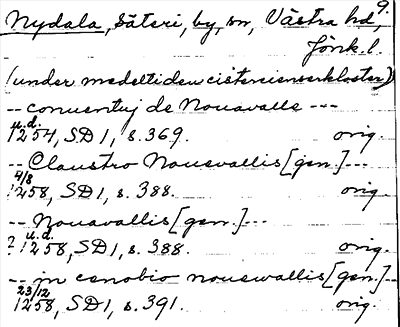 9.
Nydala, Säteri, by, sn, Västra hd,
Jönk. l.
(under medeltiden cistercienserkloster)
-- conuentuj de Nouavalle ---
u.d.
1254, SD 1, s. 369. orig.
-- Claustro Nouevallis [gen.] ---
4/8
1258, SD 1, s. 388. orig.
-- Nouavallis [gen.] ---
u.d.
? 1258, SD 1, s. 388. orig.
-- in cenobio nouevallis [gen.] --
23/12
1258, SD 1, s. 391. orig.